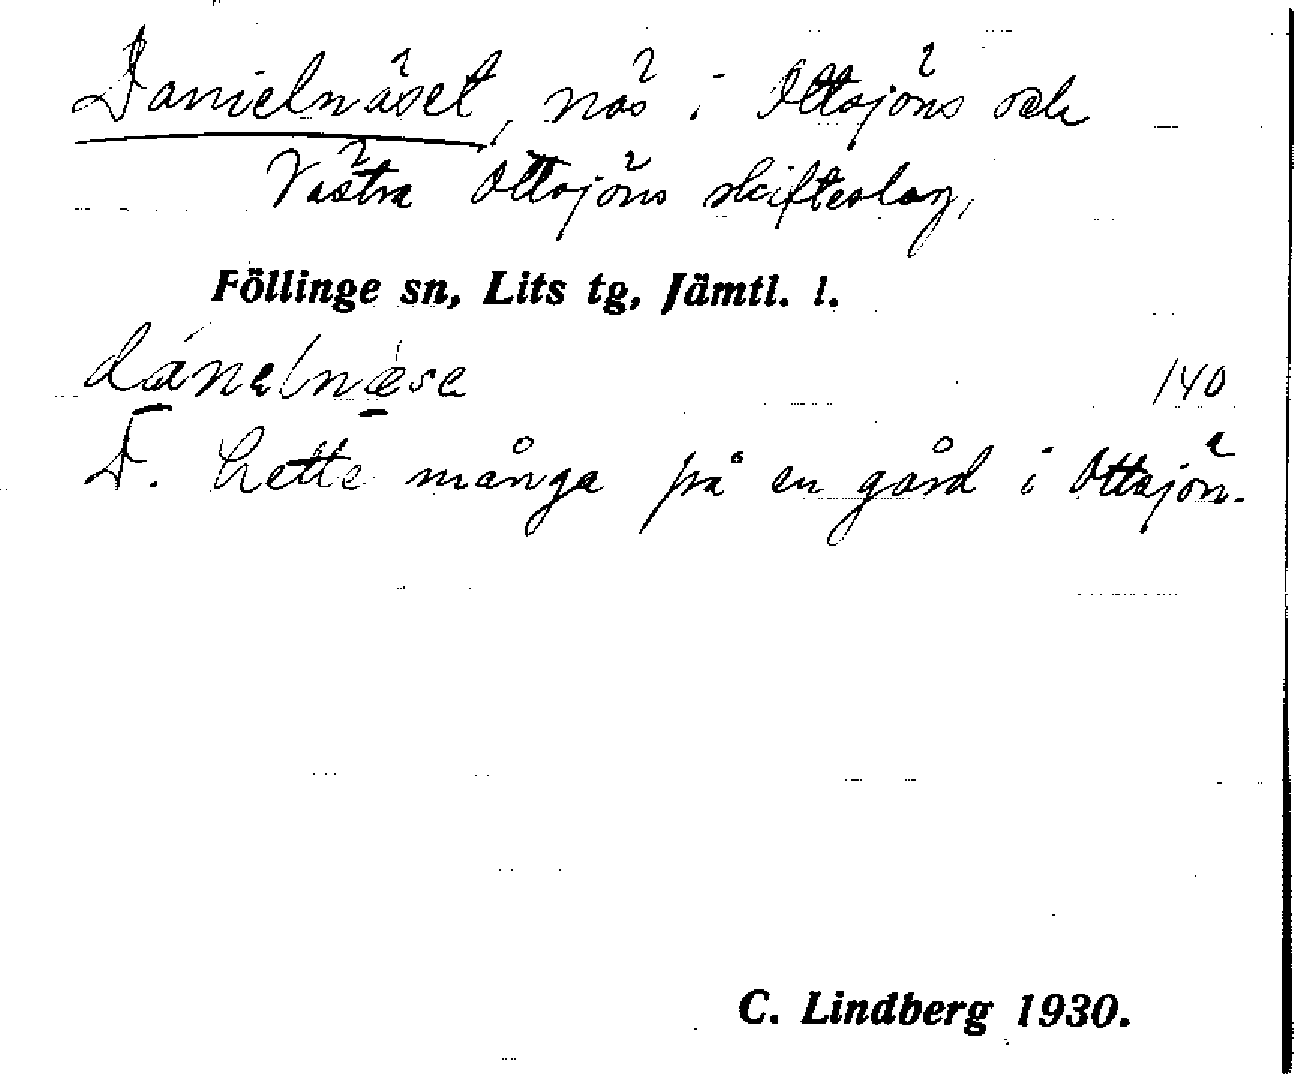 Danielnäset, näs i Ottsjöns och
Västra Ottsjöns skifteslag,
Föllinge sn, Lits tg, Jämtl. l.
dánelnèse
140
D. hette många på en gård i Ottsjön.
C. Lindberg 1930.